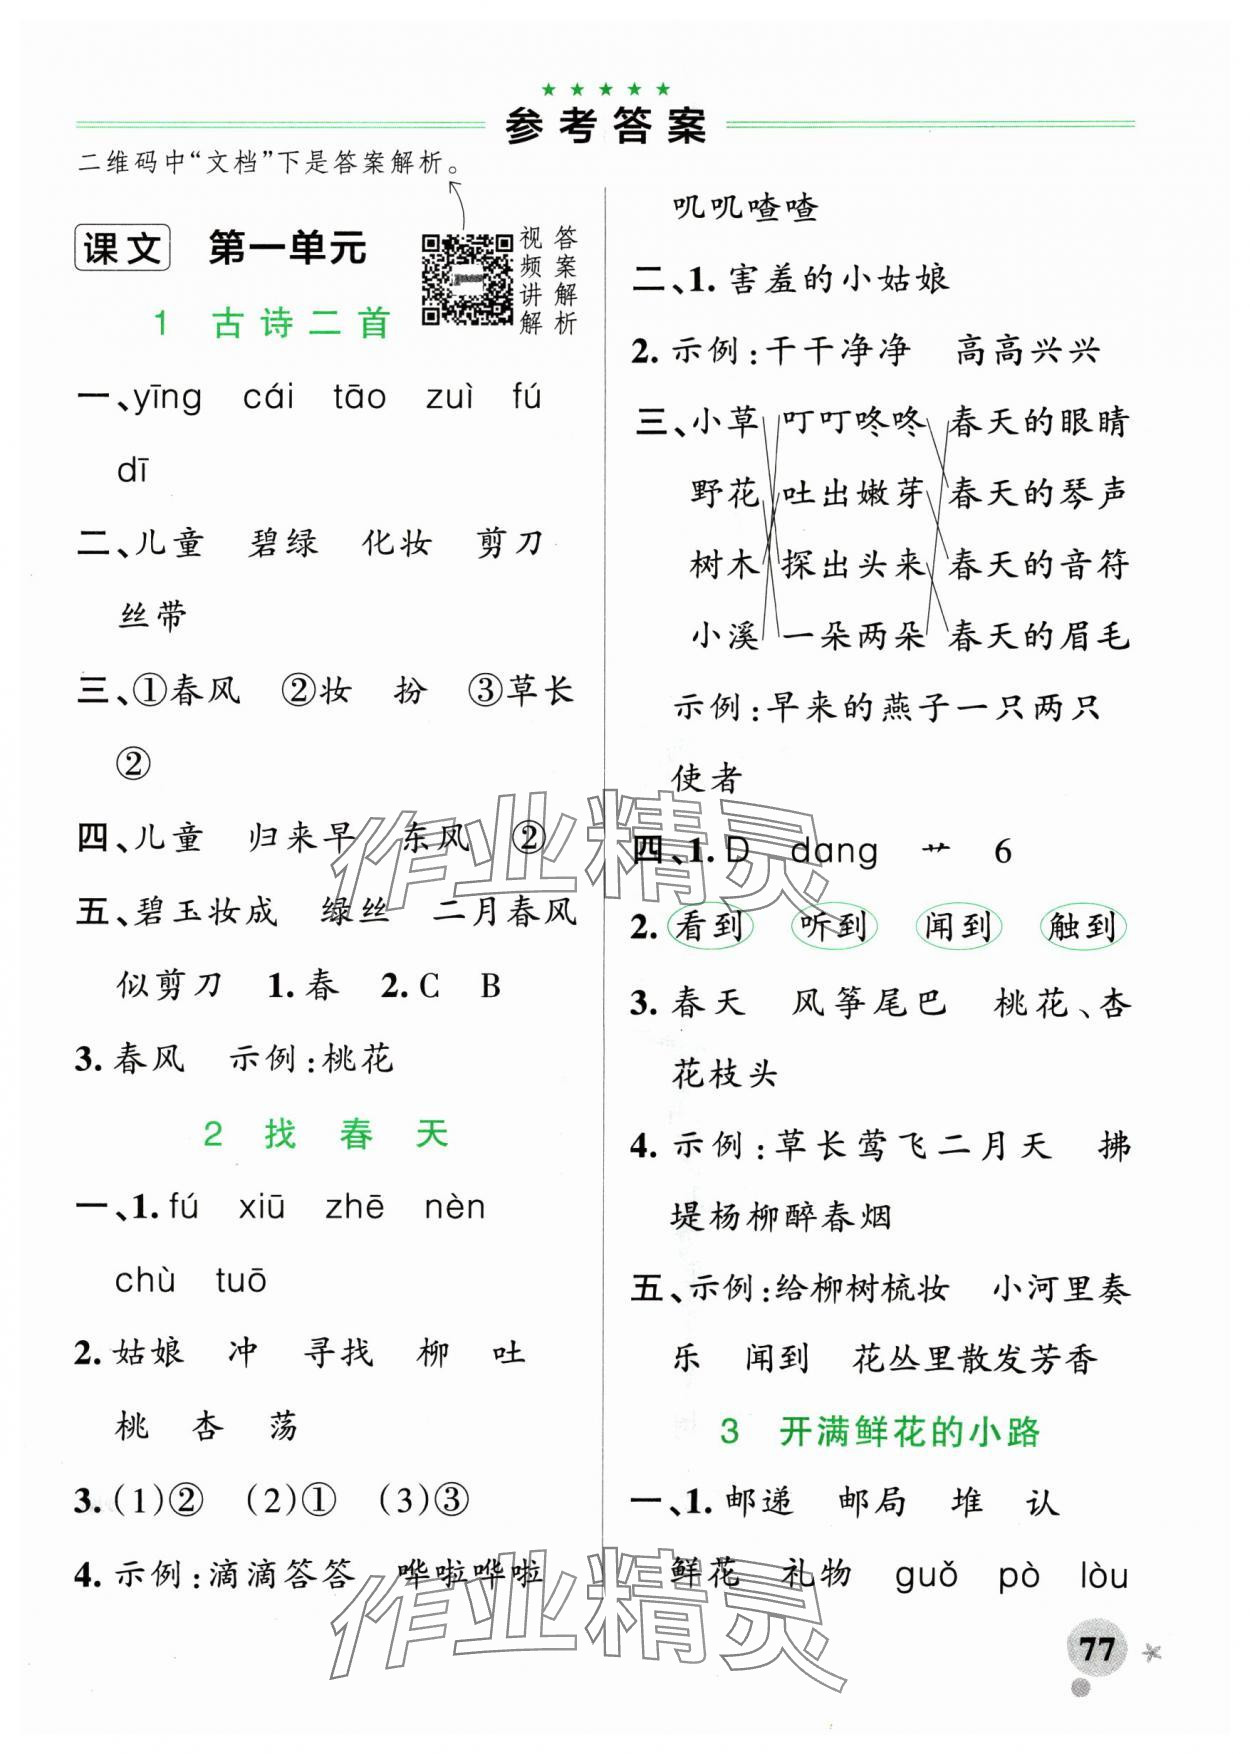 ★ ★ ★ ★ ★
参考答案
二维码中“文档”下是答案解析。
课文 第一单元
视频讲解
答案解析
1 古诗二首
一、yīng cái tāo zuì fú
dī
二、儿童 碧绿 化妆 剪刀
丝带
三、①春风 ②妆 扮 ③草长
②
四、儿童 归来早 东风 ②
五、碧玉妆成 绿丝 二月春风
似剪刀 1.春 2.C B
3.春风 示例:桃花
2 找春天
一、1.fú xiū zhē nèn
chù tuō
2.姑娘 冲 寻找 柳 吐
桃 杏 荡
3.(1)② (2)① (3)③
4.示例:滴滴答答 哗啦哗啦
叽叽喳喳
二、1.害羞的小姑娘
2.示例:干干净净 高高兴兴
三、小草 叮叮咚咚 春天的眼睛
野花 吐出嫩芽 春天的琴声
树木 探出头来 春天的音符
小溪 一朵两朵 春天的眉毛
示例:早来的燕子一只两只
使者
四、1.D dang 艹 6
2.看到 听到 闻到 触到
3.春天 风筝尾巴 桃花、杏
花枝头
4.示例:草长莺飞二月天 拂
堤杨柳醉春烟
五、示例:给柳树梳妆 小河里奏
乐 闻到 花丛里散发芳香
3 开满鲜花的小路
一、1.邮递 邮局 堆 认
鲜花 礼物 guǒ pò lòu
77
作业精灵
作业精灵